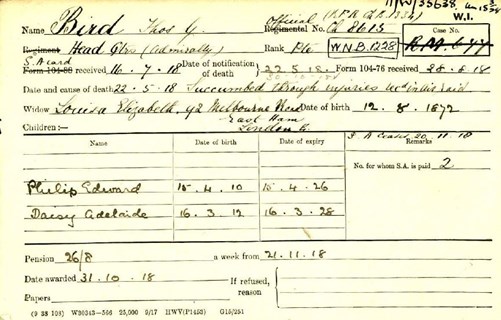 11/W/35638
W.I.
Name Bird Thos G. Official (R.F.R. Ch.B.1334)
Regimental No. Ch 8615
Case No.
Regiment Head Qtrs (Admiralty) Rank Pte W.N.B.1228
S.A card
Form 104-88 received 16.7.18 Date of notification of death 22.5.18 Form 104-76 received 28.6.18
Date and cause of death 22.5.18 Succumbed through injuries rec'd in raid
Widow Louisa Elizabeth, 42 Melbourne Road Date of birth 12.8.1872
East Ham
London E.
Children:—
S.A ceases 20.11.18
Name Date of birth Date of expiry Remarks
No. for whom S.A. is paid 2
Philip Edward 15.4.10 15.4.26
Daisy Adelaide 16.3.12 16.3.28
Pension 26/8 a week from 21.11.18
Date awarded 31.10.18 If refused, reason
Papers
(9 38 108) W30343—566 25,000 9/17 HWV(P1453) G15/251